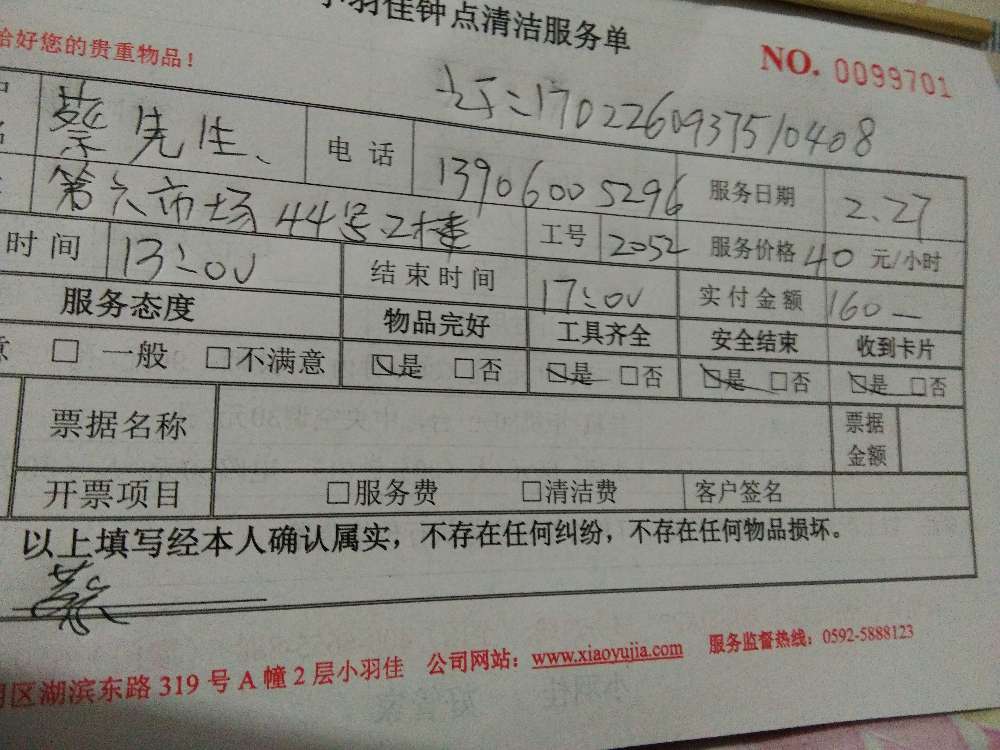 小羽佳钟点清洁服务单
给好您的贵重物品!
NO. 0099701
1702260937510408
蔡先生、 电话 13906005296 服务日期 2.27
第六市场44号2楼 工号 2052 服务价格 40 元/小时
时间 13:00 结束时间 17:00 实付金额 160—
服务态度 物品完好 工具齐全 安全结束 收到卡片
意 □ 一般 □不满意 ☑是 □否 ☑是 □否 ☑是 □否 ☑是 □否
票据名称 票据金额
开票项目 □服务费 □清洁费 客户签名
以上填写经本人确认属实，不存在任何纠纷，不存在任何物品损坏。
蔡
明区湖滨东路319号A幢2层小羽佳 公司网站：www.xiaoyujia.com 服务监督热线：0592-5888123